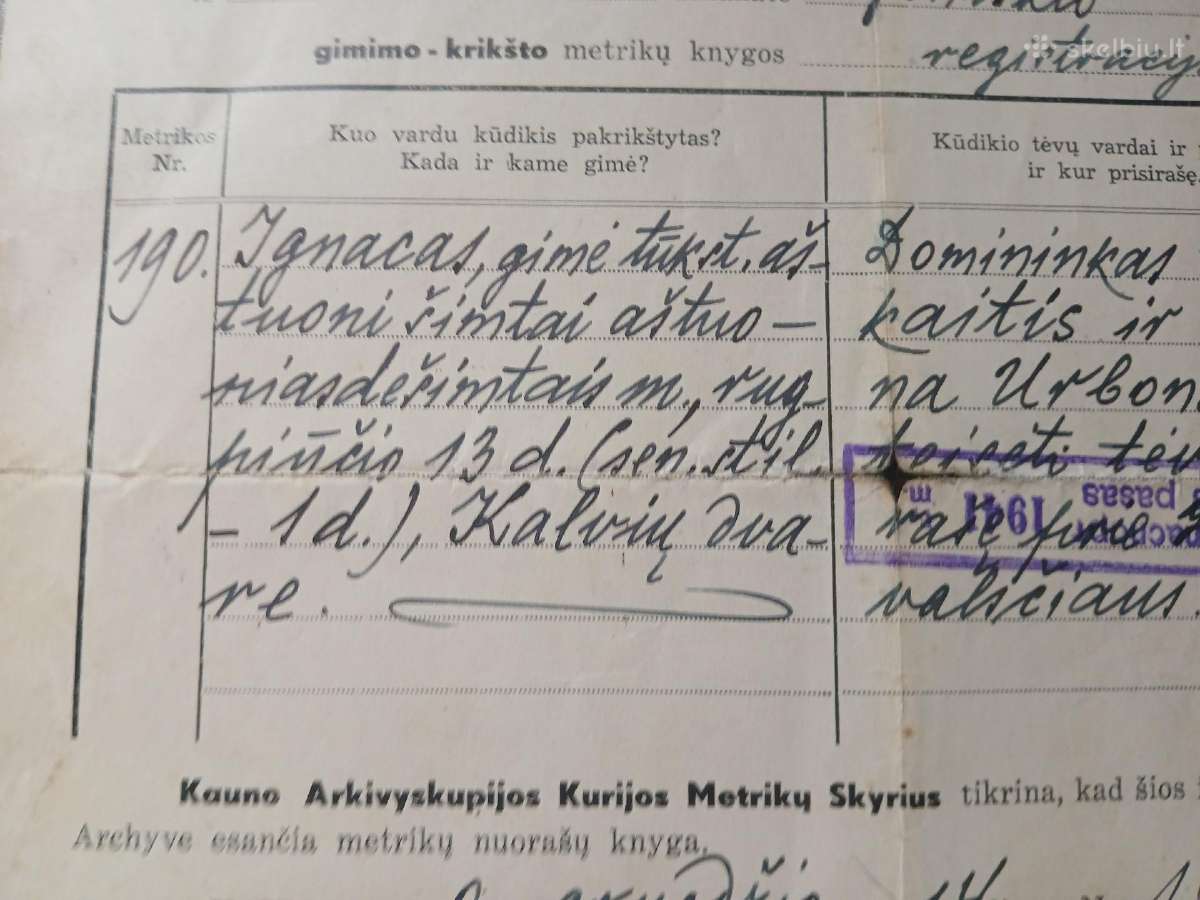 skelbiu.lt
gimimo - krikšto metrikų knygos
Metrikos Nr.
Kuo vardu kūdikis pakrikštytas?
Kada ir kame gimė?
Kūdikio tėvų vardai ir
ir kur prisirašę
190.
Ignacas, gimė tūkst. aš-
tuoni šimtai aštuo-
niasdešimtais m., rug-
piūčio 13 d. (sen. stil.
- 1 d.), Kalvių dva-
re.
Domininkas
kaitis ir
na Urbon
tėv
valsčiaus.
pasas
1941 m.
Kauno Arkivyskupijos Kurijos Metrikų Skyrius tikrina, kad šios
Archyve esančia metrikų nuorašų knyga.
14